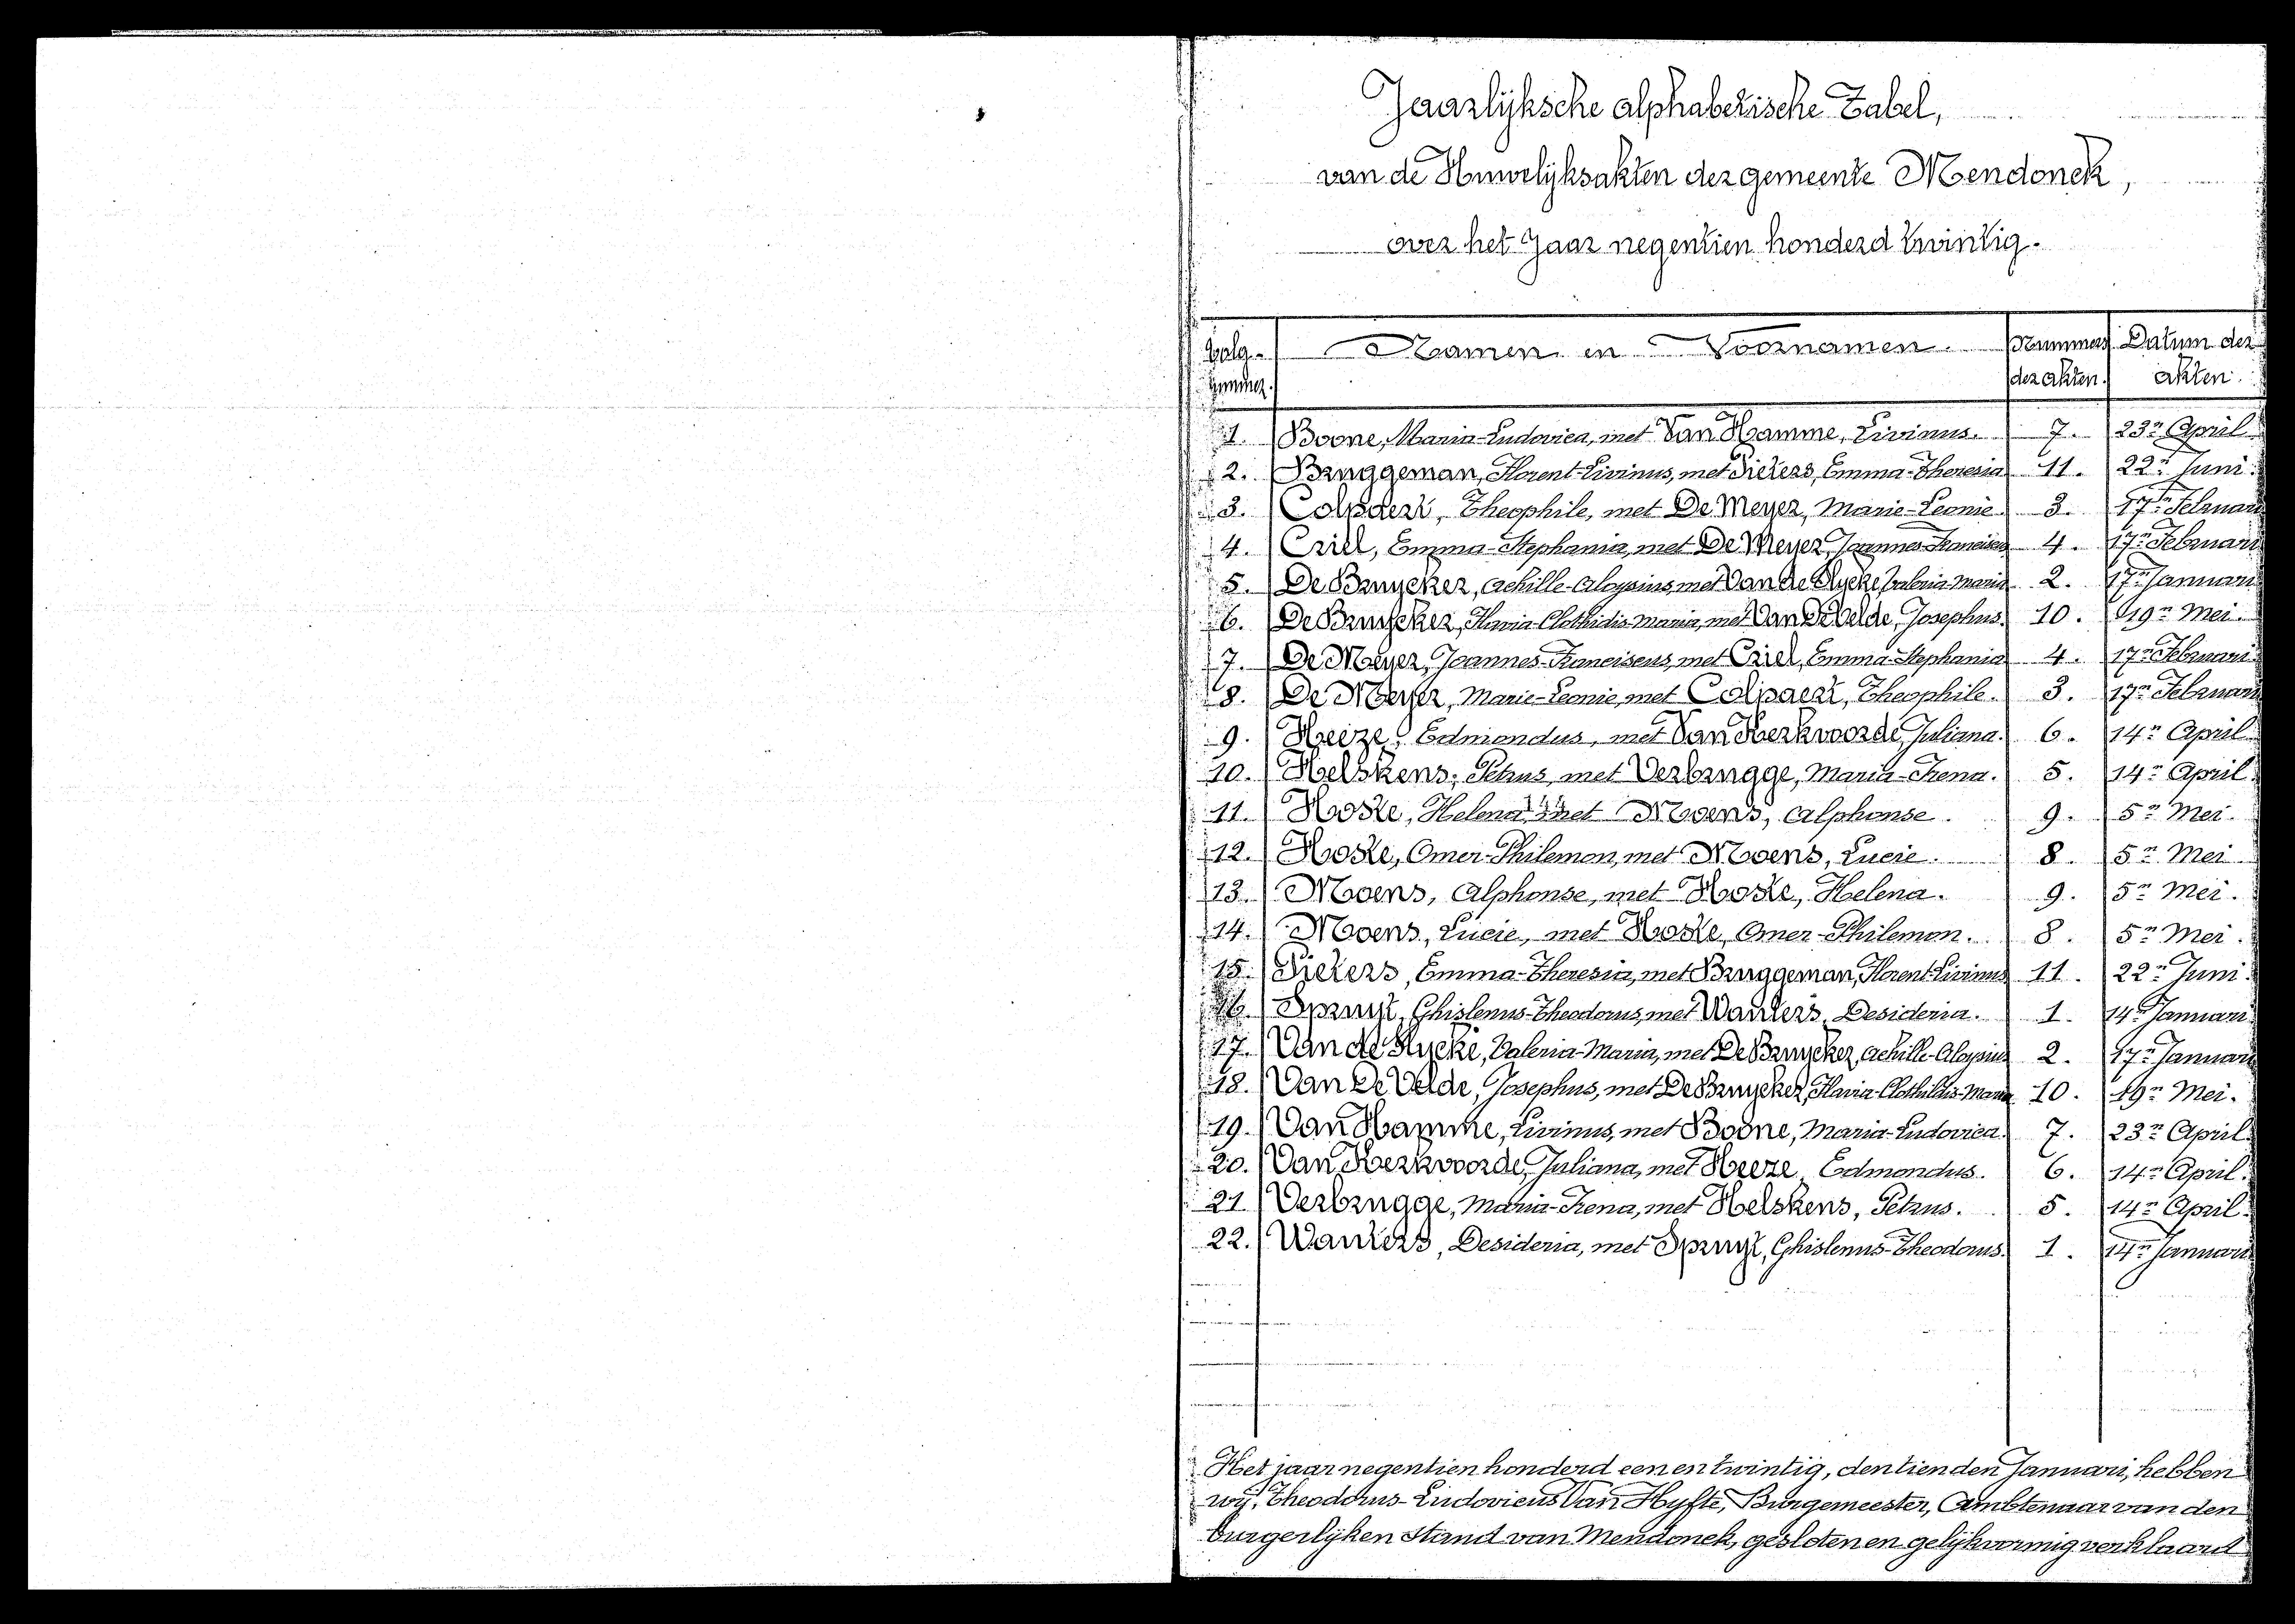 Jaarlijksche alphabetische Tabel,
van de Huwelijksakten der gemeente Mendonck,
over het Jaar negentien honderd twintig.
Volg- Namen en Voornamen. Nummers Datum der
nummer. der akten. akten.
1. Boone, Maria-Ludovica, met Van Hamme, Livinus. 7. 23n April
2. Bruggeman, Florent-Livinus, met Pieters, Emma-Theresia 11. 22n Juni.
3. Colpaert, Theophile, met De Meyer, Marie-Leonie 3. 17n Februari
4. Criel, Emma-Stephania, met De Meyer, Joannes-Franciscus 4. 17n Februari
5. De Bruycker, Achille-Aloysius, met Van de Rycke, Valeria-Maria 2. 17n Januari
6. De Bruycker, Flavia-Clothidis-Maria, met Van De Velde, Josephus. 10. 19n Mei.
7. De Meyer, Joannes-Franciscus, met Criel, Emma-Stephania 4. 17n Februari
8. De Meyer, Marie-Leonie, met Colpaert, Theophile. 3. 17n Februari
9. Heeze, Edmondus, met Van Kerkvoorde, Juliana. 6. 14n April.
10. Helskens, Petrus, met Verbrugge, Maria-Irena. 5. 14n April.
11. Hoste, Helena, met Moens, Alphonse. 9. 5n Mei.
12. Hoste, Omer-Philemon, met Moens, Lucie. 8. 5n Mei.
13. Moens, Alphonse, met Hoste, Helena. 9. 5n Mei.
14. Moens, Lucie, met Hoste, Omer-Philemon. 8. 5n Mei.
15. Pieters, Emma-Theresia, met Bruggeman, Florent-Livinus 11. 22n Juni.
16. Spruyt, Ghislenus-Theodorus, met Wauters, Desideria. 1. 14n Januari
17. Van de Rycke, Valeria-Maria, met De Bruycker, Achille-Aloysius 2. 17n Januari
18. Van De Velde, Josephus, met De Bruycker, Flavia-Clothildis-Maria 10. 19n Mei.
19. Van Hamme, Livinus, met Boone, Maria-Ludovica. 7. 23n April.
20. Van Kerkvoorde, Juliana, met Heeze, Edmondus. 6. 14n April.
21. Verbrugge, Maria-Irena, met Helskens, Petrus. 5. 14n April.
22. Wauters, Desideria, met Spruyt, Ghislenus-Theodorus. 1. 14n Januari
Het jaar negentien honderd een en twintig, den tienden Januari, hebben
wij, Theodorus-Ludovicus Van Hyfte, Burgemeester, Ambtenaar van den
burgerlijken stand van Mendonck, gesloten en gelijkvormig verklaard